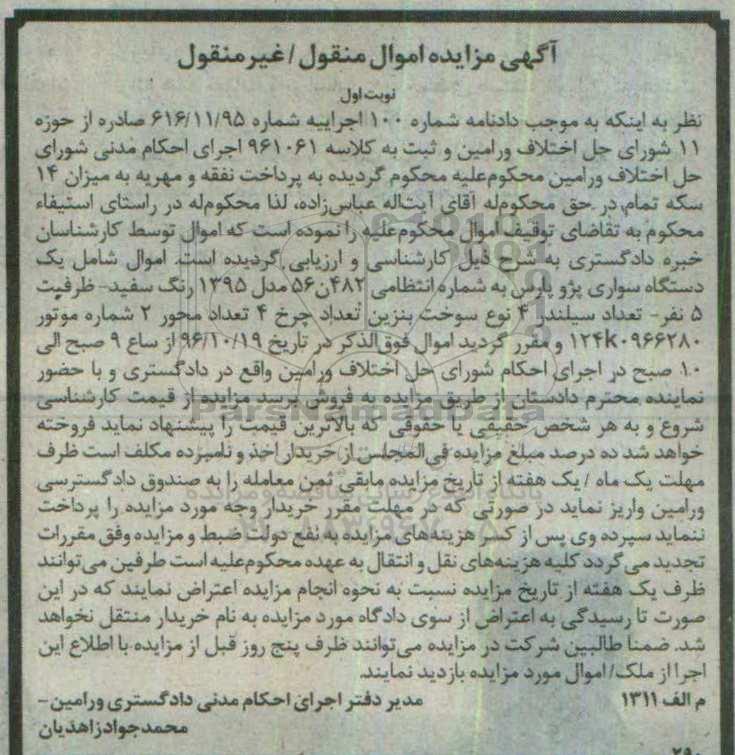 آگهی مزایده اموال منقول / غیر منقول
نوبت اول
نظر به اینکه به موجب دادنامه شماره ۱۰۰ اجراییه شماره ۶۱۶/۱۱/۹۵ صادره از حوزه
۱۱ شورای حل اختلاف ورامین و ثبت به کلاسه ۹۶۱۰۶۱ اجرای احکام مدنی شورای
حل اختلاف ورامین محکوم‌علیه محکوم گردیده به پرداخت نفقه و مهریه به میزان ۱۴
سکه تمام در حق محکوم‌له آقای آیت‌اله عباس‌زاده، لذا محکوم‌له در راستای استیفاء
محکوم به تقاضای توقیف اموال محکوم‌علیه را نموده است که اموال توسط کارشناسان
خبره دادگستری به شرح ذیل کارشناسی و ارزیابی گردیده است. اموال شامل یک
دستگاه سواری پژو پارس به شماره انتظامی ۴۸۲ن۵۶ مدل ۱۳۹۵ رنگ سفید- ظرفیت
۵ نفر- تعداد سیلندر ۴ نوع سوخت بنزین تعداد چرخ ۴ تعداد محور ۲ شماره موتور
۱۲۴k۰۹۶۶۲۸۰ و مقرر گردید اموال فوق‌الذکر در تاریخ ۹۶/۱۰/۱۹ از ساع ۹ صبح الی
۱۰ صبح در اجرای احکام شورای حل اختلاف ورامین واقع در دادگستری و با حضور
نماینده محترم دادستان از طریق مزایده به فروش برسد مزایده از قیمت کارشناسی
شروع و به هر شخص حقیقی یا حقوقی که بالاترین قیمت را پیشنهاد نماید فروخته
خواهد شد ده درصد مبلغ مزایده فی‌المجلس از خریدار اخذ و نامبرده مکلف است ظرف
مهلت یک ماه / یک هفته از تاریخ مزایده مابقی ثمن معامله را به صندوق دادگسترسی
ورامین واریز نماید در صورتی که در مهلت مقرر خریدار وجه مورد مزایده را پرداخت
ننماید سپرده وی پس از کسر هزینه‌های مزایده به نفع دولت ضبط و مزایده وفق مقررات
تجدید می‌گردد کلیه هزینه‌های نقل و انتقال به عهده محکوم‌علیه است طرفین می‌توانند
ظرف یک هفته از تاریخ مزایده نسبت به نحوه انجام مزایده اعتراض نمایند که در این
صورت تا رسیدگی به اعتراض از سوی دادگاه مورد مزایده به نام خریدار منتقل نخواهد
شد. ضمنا طالبین شرکت در مزایده می‌توانند ظرف پنج روز قبل از مزایده با اطلاع این
اجرا از ملک/ اموال مورد مزایده بازدید نمایند.
م الف ۱۳۱۱ مدیر دفتر اجرای احکام مدنی دادگستری ورامین-
محمدجواد زاهدیان
ParsNamadData